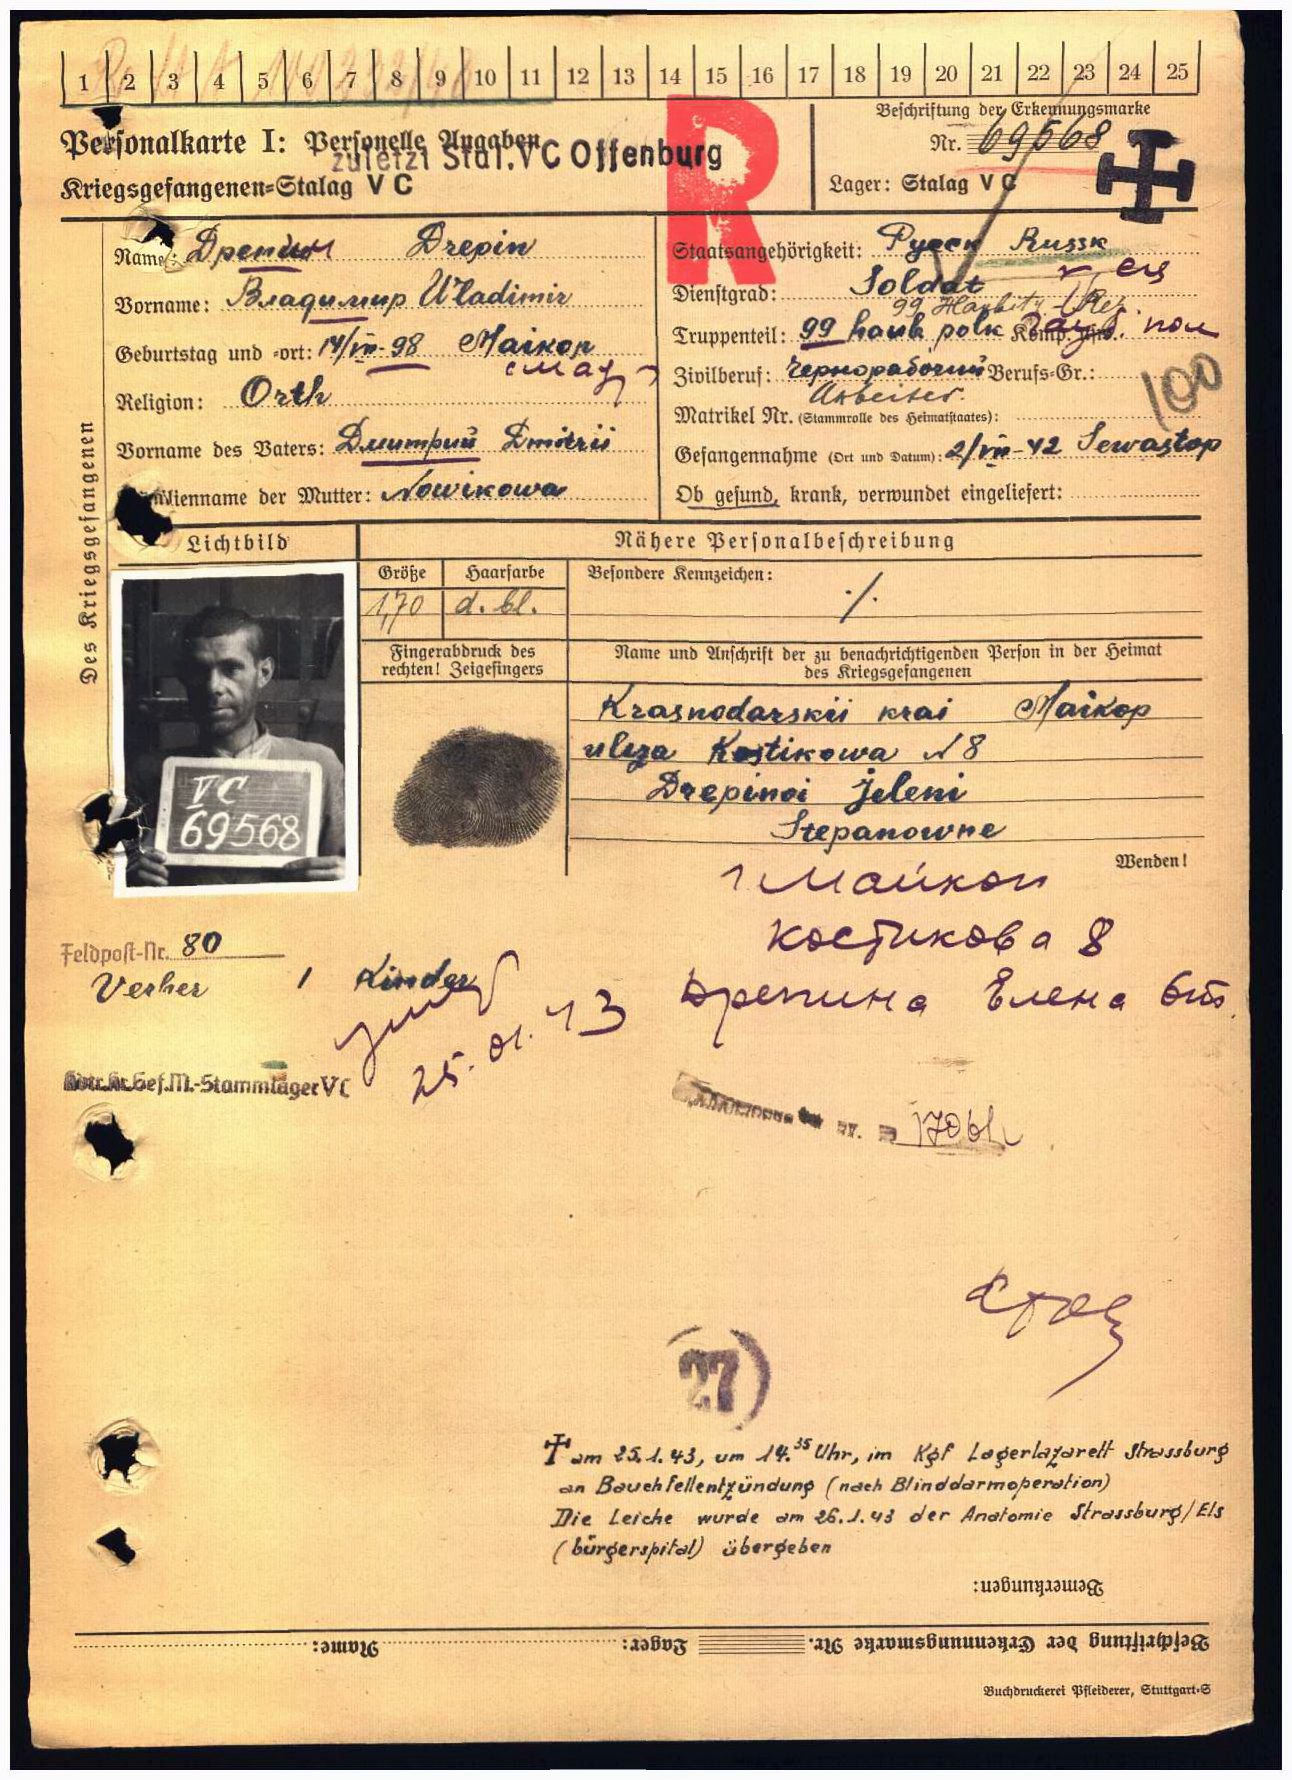 1 2 3 4 5 6 7 8 9 10 11 12 13 14 15 16 17 18 19 20 21 22 23 24 25
Personalkarte I: Personelle Angaben
zuletzt Stal. V C Offenburg
Kriegsgefangenen=Stalag V C
R
Beschriftung der Erkennungsmarke
Nr. 69568
Lager: Stalag V C
Des Kriegsgefangenen
Name: Дрепин Drepin
Vorname: Владимир Wladimir
Geburtstag und =ort: 14/VII-98 Maikop
Religion: Orth
Vorname des Vaters: Дмитрий Dmitrii
Familienname der Mutter: Nowikowa
Staatsangehörigkeit: Русск Russk
Dienstgrad: Soldat
Truppenteil: 99 haub polk
Zivilberuf: Чернорабочий Berufs=Gr.:
Arbeiter.
Matrikel Nr. (Stammrolle des Heimatstaates):
100
Gefangennahme (Ort und Datum): 2/VII-42 Sewastop
Ob gesund, krank, verwundet eingeliefert:
Lichtbild
Nähere Personalbeschreibung
Größe Haarfarbe Besondere Kennzeichen:
1,70 d. bl. ./.
Fingerabdruck des rechten! Zeigefingers
Name und Anschrift der zu benachrichtigenden Person in der Heimat
des Kriegsgefangenen
VC
69568
Krasnodarskii krai Maikop
uliza Kostikowa N 8
Drepinoi Jeleni
Stepanowne
Wenden!
г Майкоп
Костикова 8
Дрепина Елена
Feldpost=Nr. 80
Verher 1 Kinder
25.01.43
Kr.Gef.M.-Stammlager VC
27
† am 25.1.43, um 14.35 Uhr, im Kgf Lagerlazarett Strassburg
an Bauchfellentzündung (nach Blinddarmoperation)
Die Leiche wurde am 26.1.43 der Anatomie Strassburg/Els
(bürgerspital) übergeben
Bemerkungen:
Beschriftung der Erkennungsmarke Nr. Lager: Name:
Buchdruckerei Pfleiderer, Stuttgart=S